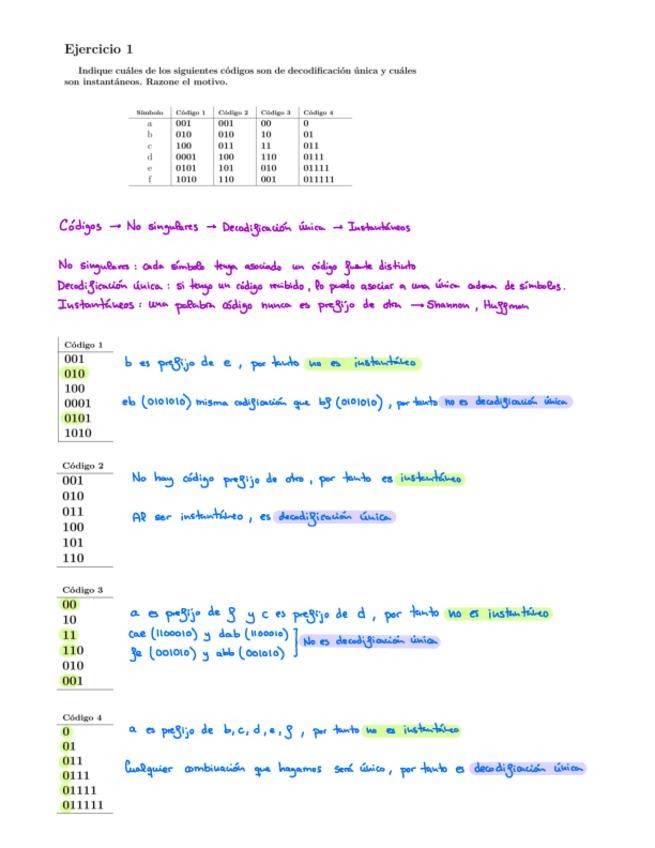 Ejercicio 1
Indique cuáles de los siguientes códigos son de decodificación única y cuáles
son instantáneos. Razone el motivo.
Símbolo Código 1 Código 2 Código 3 Código 4
a 001 001 00 0
b 010 010 10 01
c 100 011 11 011
d 0001 100 110 0111
e 0101 101 010 01111
f 1010 110 001 011111
Códigos → No singulares → Decodificación única → Instantáneos
No singulares : cada símbolo tenga asociado un código fuente distinto
Decodificación única : si tengo un código recibido, lo puedo asociar a una única cadena de símbolos.
Instantáneos : una palabra código nunca es prefijo de otra → Shannon, Huffman
Código 1
001
010
100
0001
0101
1010
b es prefijo de e, por tanto no es instantáneo
eb (0101010) misma codificación que bf (0101010), por tanto no es decodificación única
Código 2
001
010
011
100
101
110
No hay código prefijo de otro, por tanto es instantáneo
Al ser instantáneo, es decodificación única
Código 3
00
10
11
110
010
001
a es prefijo de f y c es prefijo de d, por tanto no es instantáneo
cae (1100010) y dab (1100010)
fe (001010) y abb (001010)
No es decodificación única
Código 4
0
01
011
0111
01111
011111
a es prefijo de b, c, d, e, f, por tanto no es instantáneo
Cualquier combinación que hagamos será único, por tanto es decodificación única